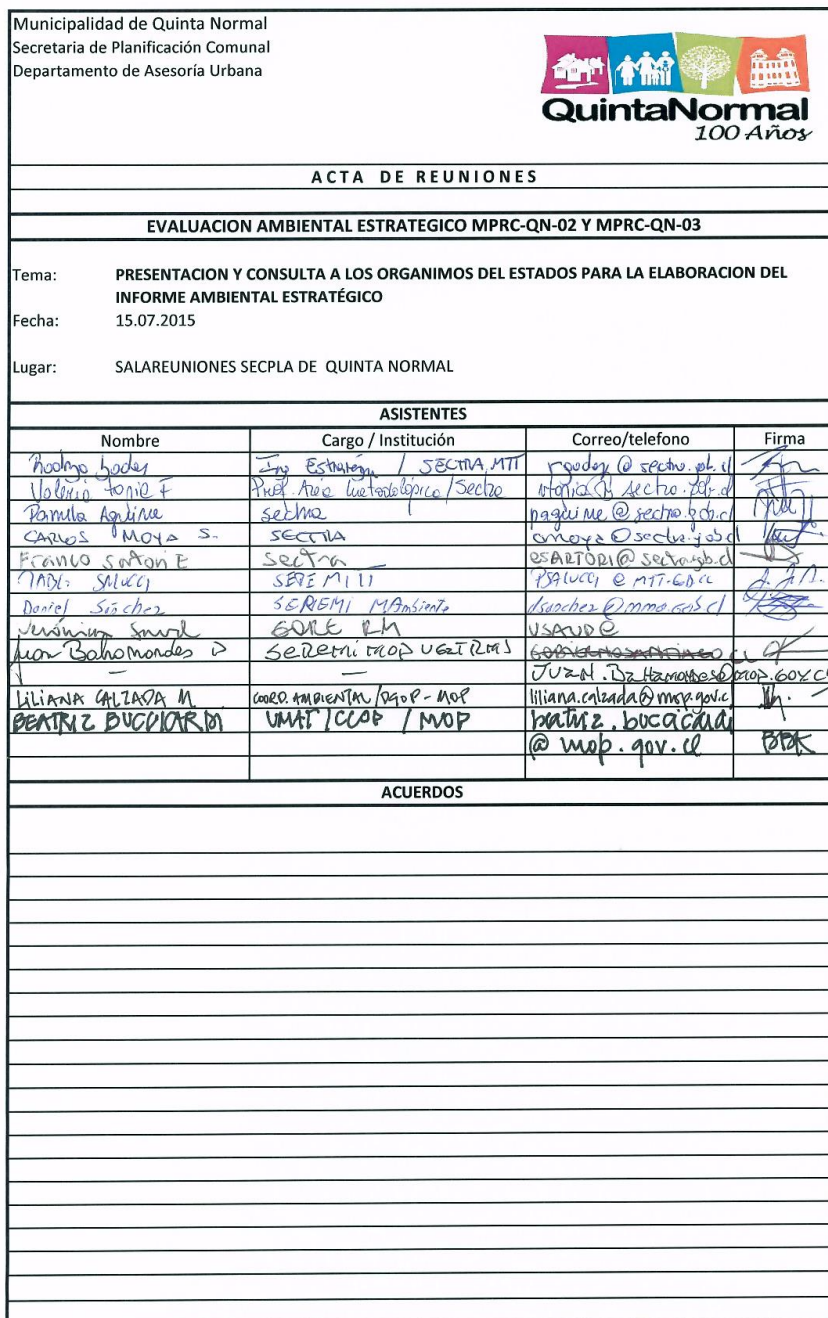 Municipalidad de Quinta Normal
Secretaria de Planificación Comunal
Departamento de Asesoría Urbana
QuintaNormal
100 Años
ACTA DE REUNIONES
EVALUACION AMBIENTAL ESTRATEGICO MPRC-QN-02 Y MPRC-QN-03
Tema: PRESENTACION Y CONSULTA A LOS ORGANIMOS DEL ESTADOS PARA LA ELABORACION DEL
INFORME AMBIENTAL ESTRATÉGICO
Fecha: 15.07.2015
Lugar: SALAREUNIONES SECPLA DE QUINTA NORMAL
ASISTENTES
Nombre Cargo / Institución Correo/telefono Firma
Rodrigo Ing Estrategia / SECTRA, MTT
Valeria Prof. Area Metodológica / Sectra
Pamela Aguirre sectra
CARLOS MOYA S. SECTRA cmoya@sectra.gob.cl
Franco Sartori E Sectra eSARTORI@sectra.gob.cl
SALUCCI PSALUCCI@MTT.GOB.CL
Daniel Sánchez SEREMI MAmbiente dsanchez@mma.gob.cl
Verónica GORE RM
Juan Bahamondes D SEREMI MOP
— — Juan.Bahamondes@mop.gov.cl
LILIANA CALZADA M COORD. AMBIENTAL / DGOP - MOP liliana.calzada@mop.gov.cl
BEATRIZ BUCCICARDI UMAT / CCOP / MOP beatriz.buccicardi
@mop.gov.cl BBK
ACUERDOS